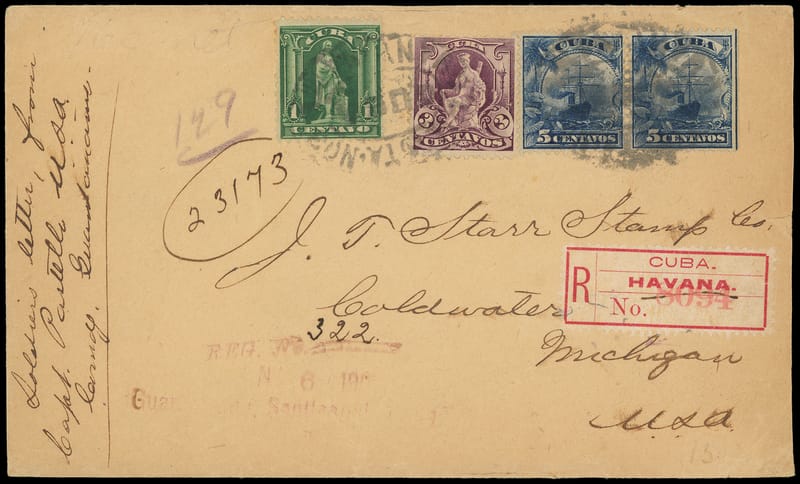 CUBA
1 1
CENTAVO
CUBA
3 3
CENTAVOS
CUBA
5 CENTAVOS
CUBA
5 CENTAVOS
129
23173
J. T. Starr Stamp Co.
Coldwater
Michigan
USA
R
CUBA.
HAVANA.
No. 8094
322.
REG. No.
6 190
Soldiers letter, from
Capt. USA
Comdg. Guantanamo
15